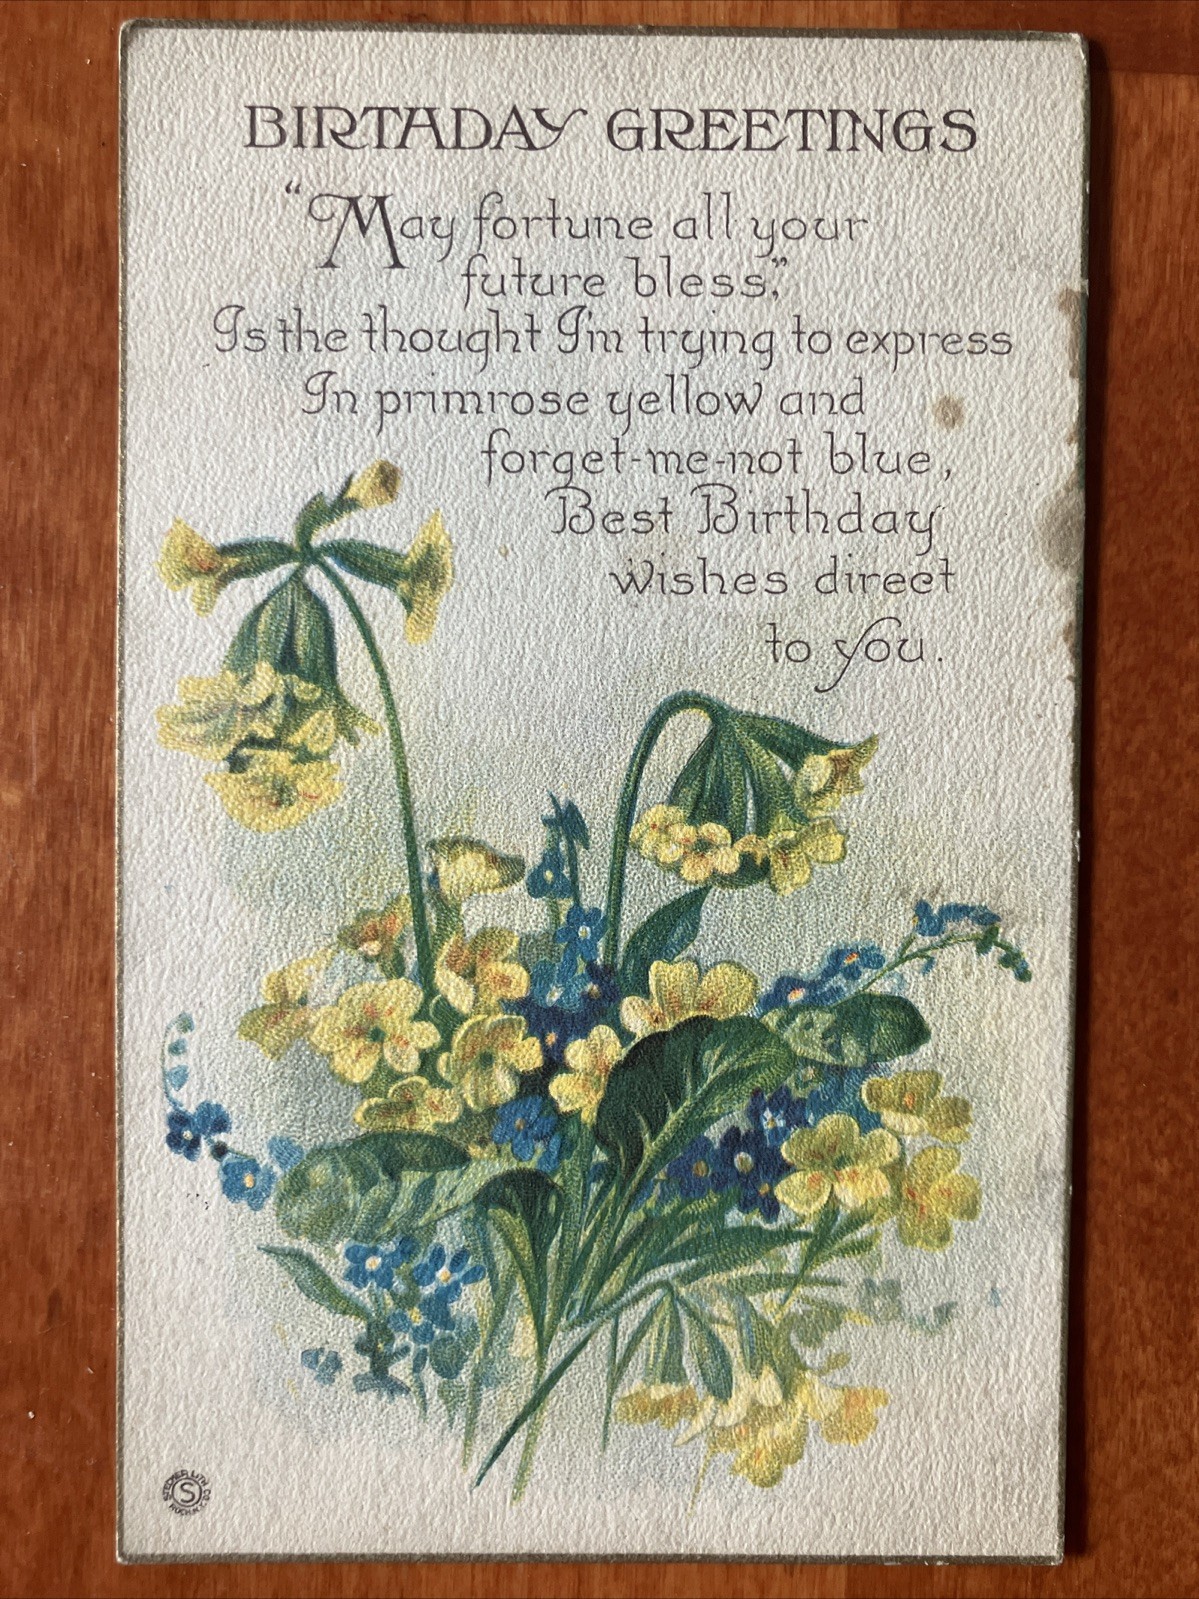 BIRTHDAY GREETINGS
"May fortune all your
future bless,"
Is the thought I'm trying to express
In primrose yellow and
forget-me-not blue,
Best Birthday
wishes direct
to you.
STECHER LITH CO
S